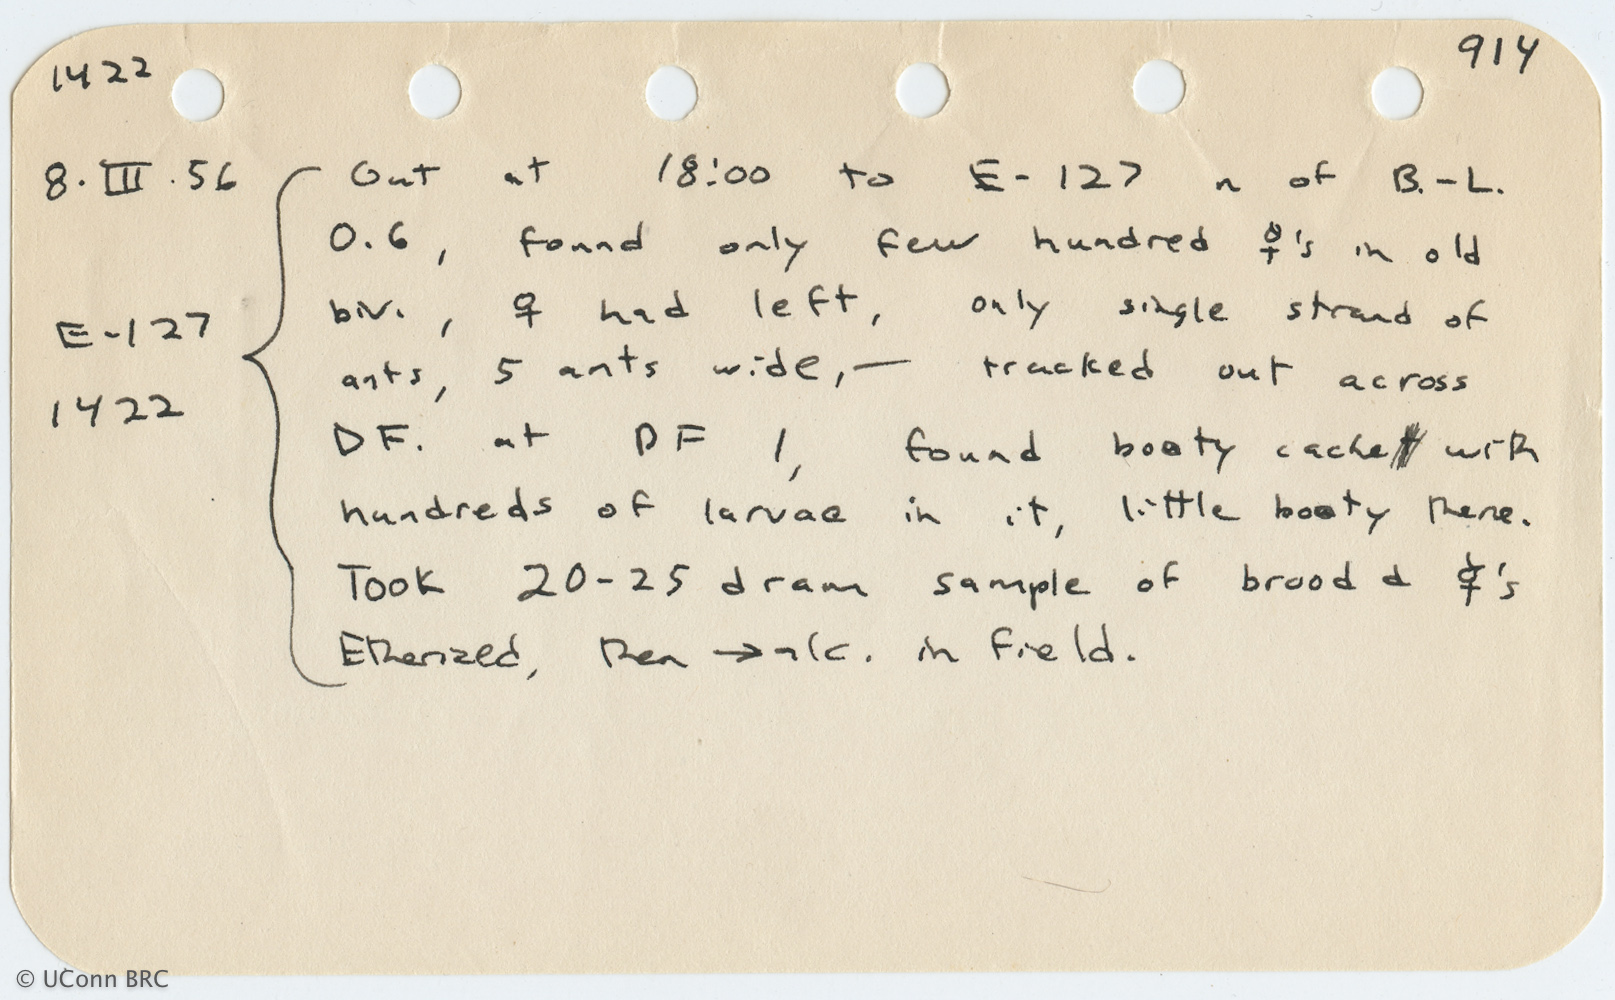 1422 914
8.III.56 Out at 18:00 to E-127 n of B.-L.
0.6, found only few hundred ☿'s in old
biv., ♀ had left, only single strand of
E-127 ants, 5 ants wide, — tracked out across
1422 DF. at DF 1, found booty cache with
hundreds of larvae in it, little booty there.
Took 20-25 dram sample of brood & ☿'s
Etherized, then → alc. in field.
© UConn BRC